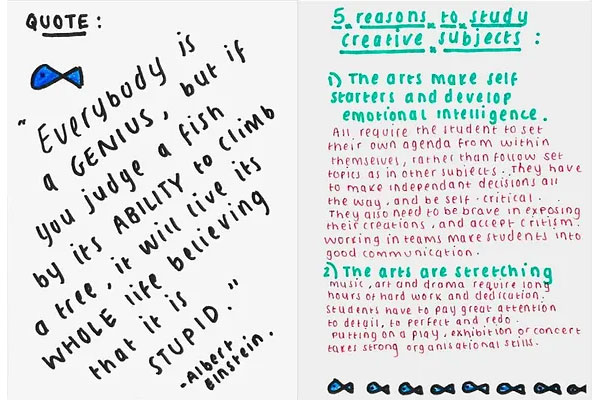 QUOTE:
"Everybody is
a GENIUS, but if
you judge a fish
by its ABILITY to climb
a tree, it will live its
WHOLE life believing
that it is
STUPID."
-Albert
Einstein.
5 reasons to study
creative subjects:
1) The arts make self
starters and develop
emotional intelligence.
All require the student to set
their own agenda from within
themselves, rather than follow set
topics as in other subjects. They have
to make independant decisions all
the way, and be self-critical.
They also need to be brave in exposing
their creations, and accept critism.
Working in teams make students into
good communication.
2) The arts are stretching
music, art and drama require long
hours of hard work and dedication.
Students have to pay great attention
to detail, to perfect and redo.
Putting on a play, exhibition or concert
takes strong organisational skills.